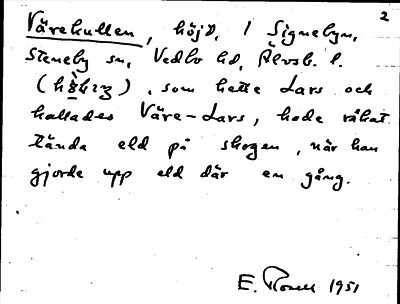 2
Värekullen, höjd, i Signebyn,
Steneby sn, Vedbo hd, Älvsb. l.
, som hette Lars och
kallades Väre-Lars, hade råkat
tända eld på skogen, när han
gjorde upp eld där en gång.
E. Rosell 1951